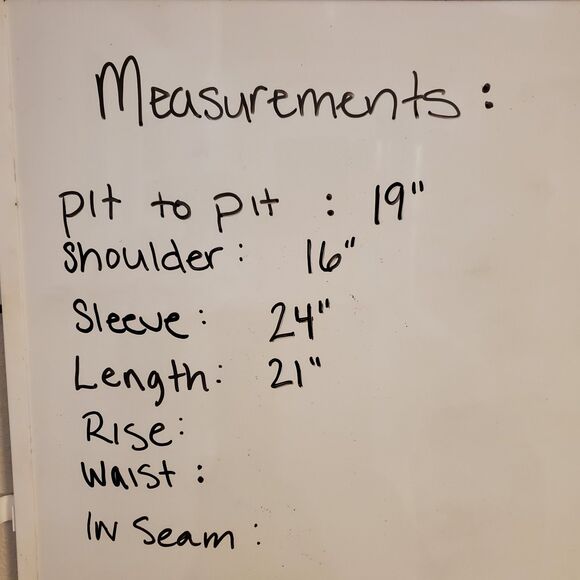 Measurements:
pit to pit : 19"
Shoulder: 16"
Sleeve: 24"
Length: 21"
Rise:
Waist:
In Seam: